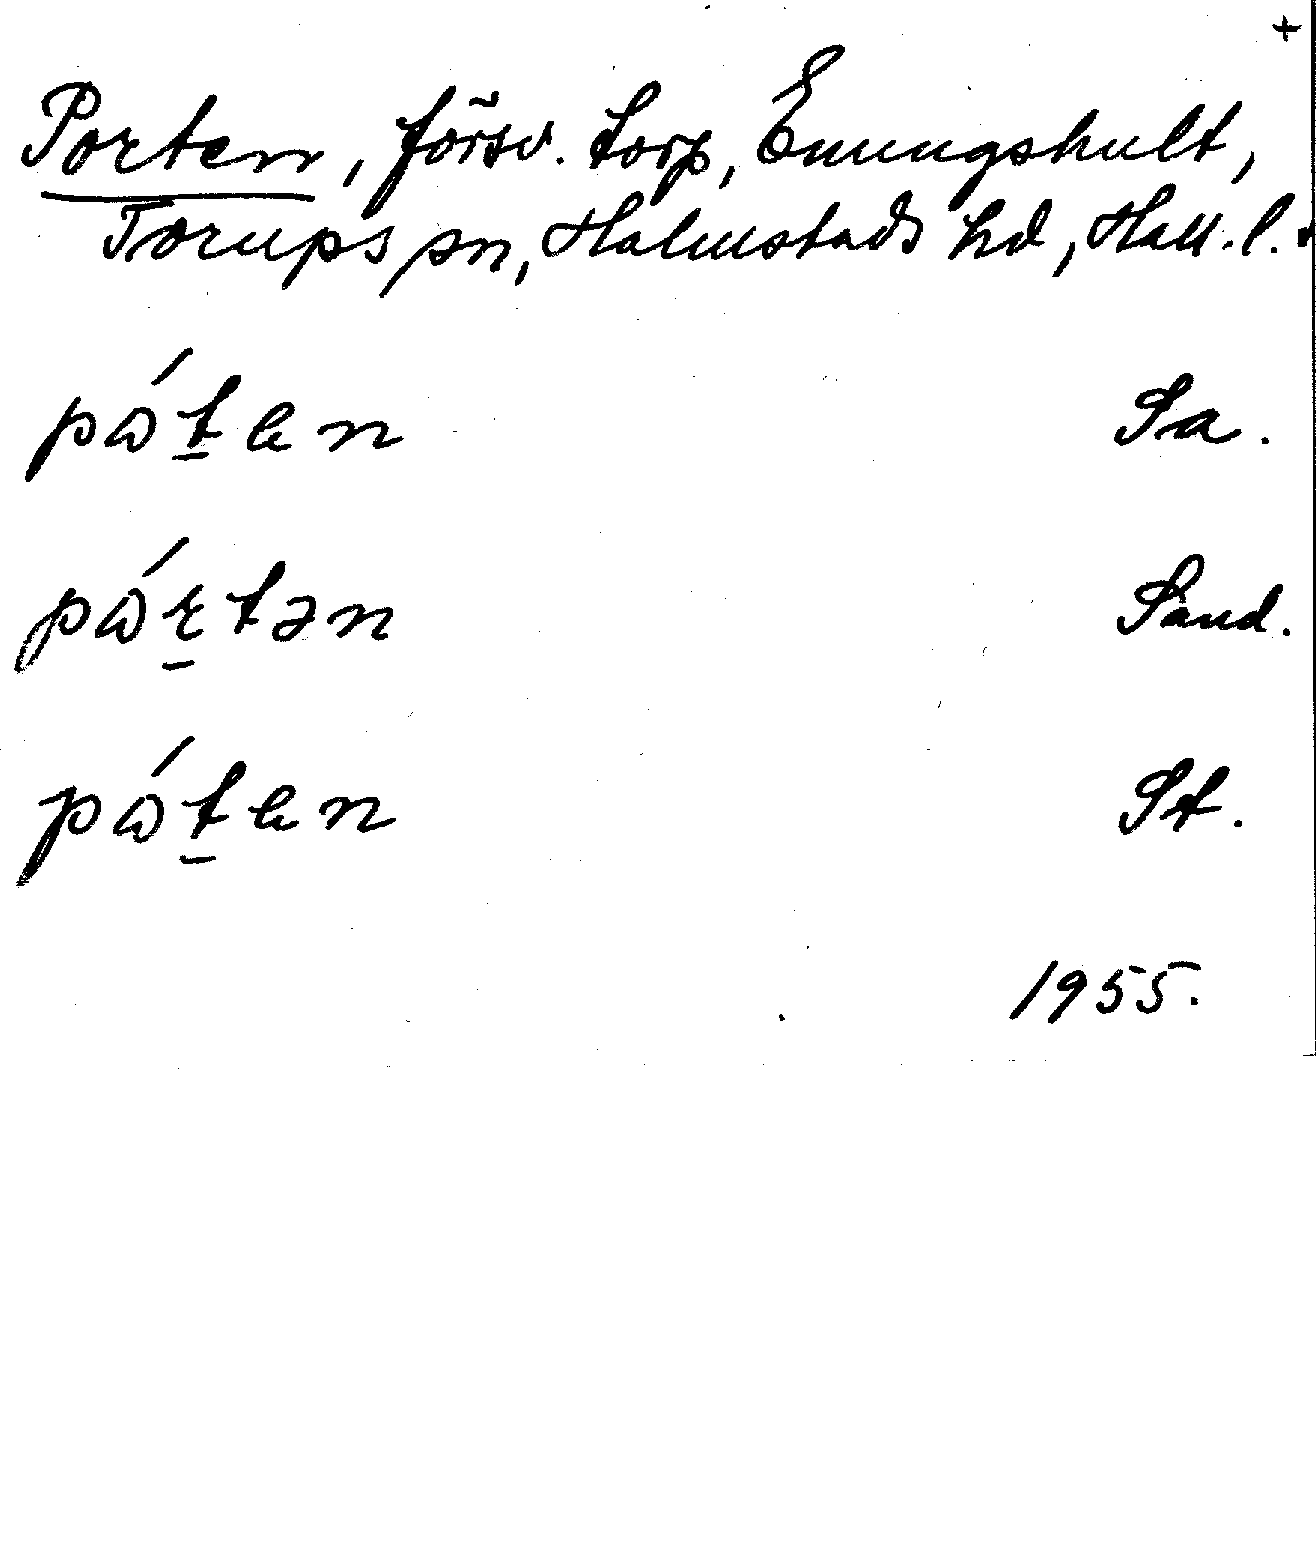 +
Porten, försv. torp, Enungshult,
Torups sn, Halmstads hd, Hall. l.
pɷ́ṯen Sa.
pɷ́ṟtən Sand.
pɷ́ṯen St.
1955.